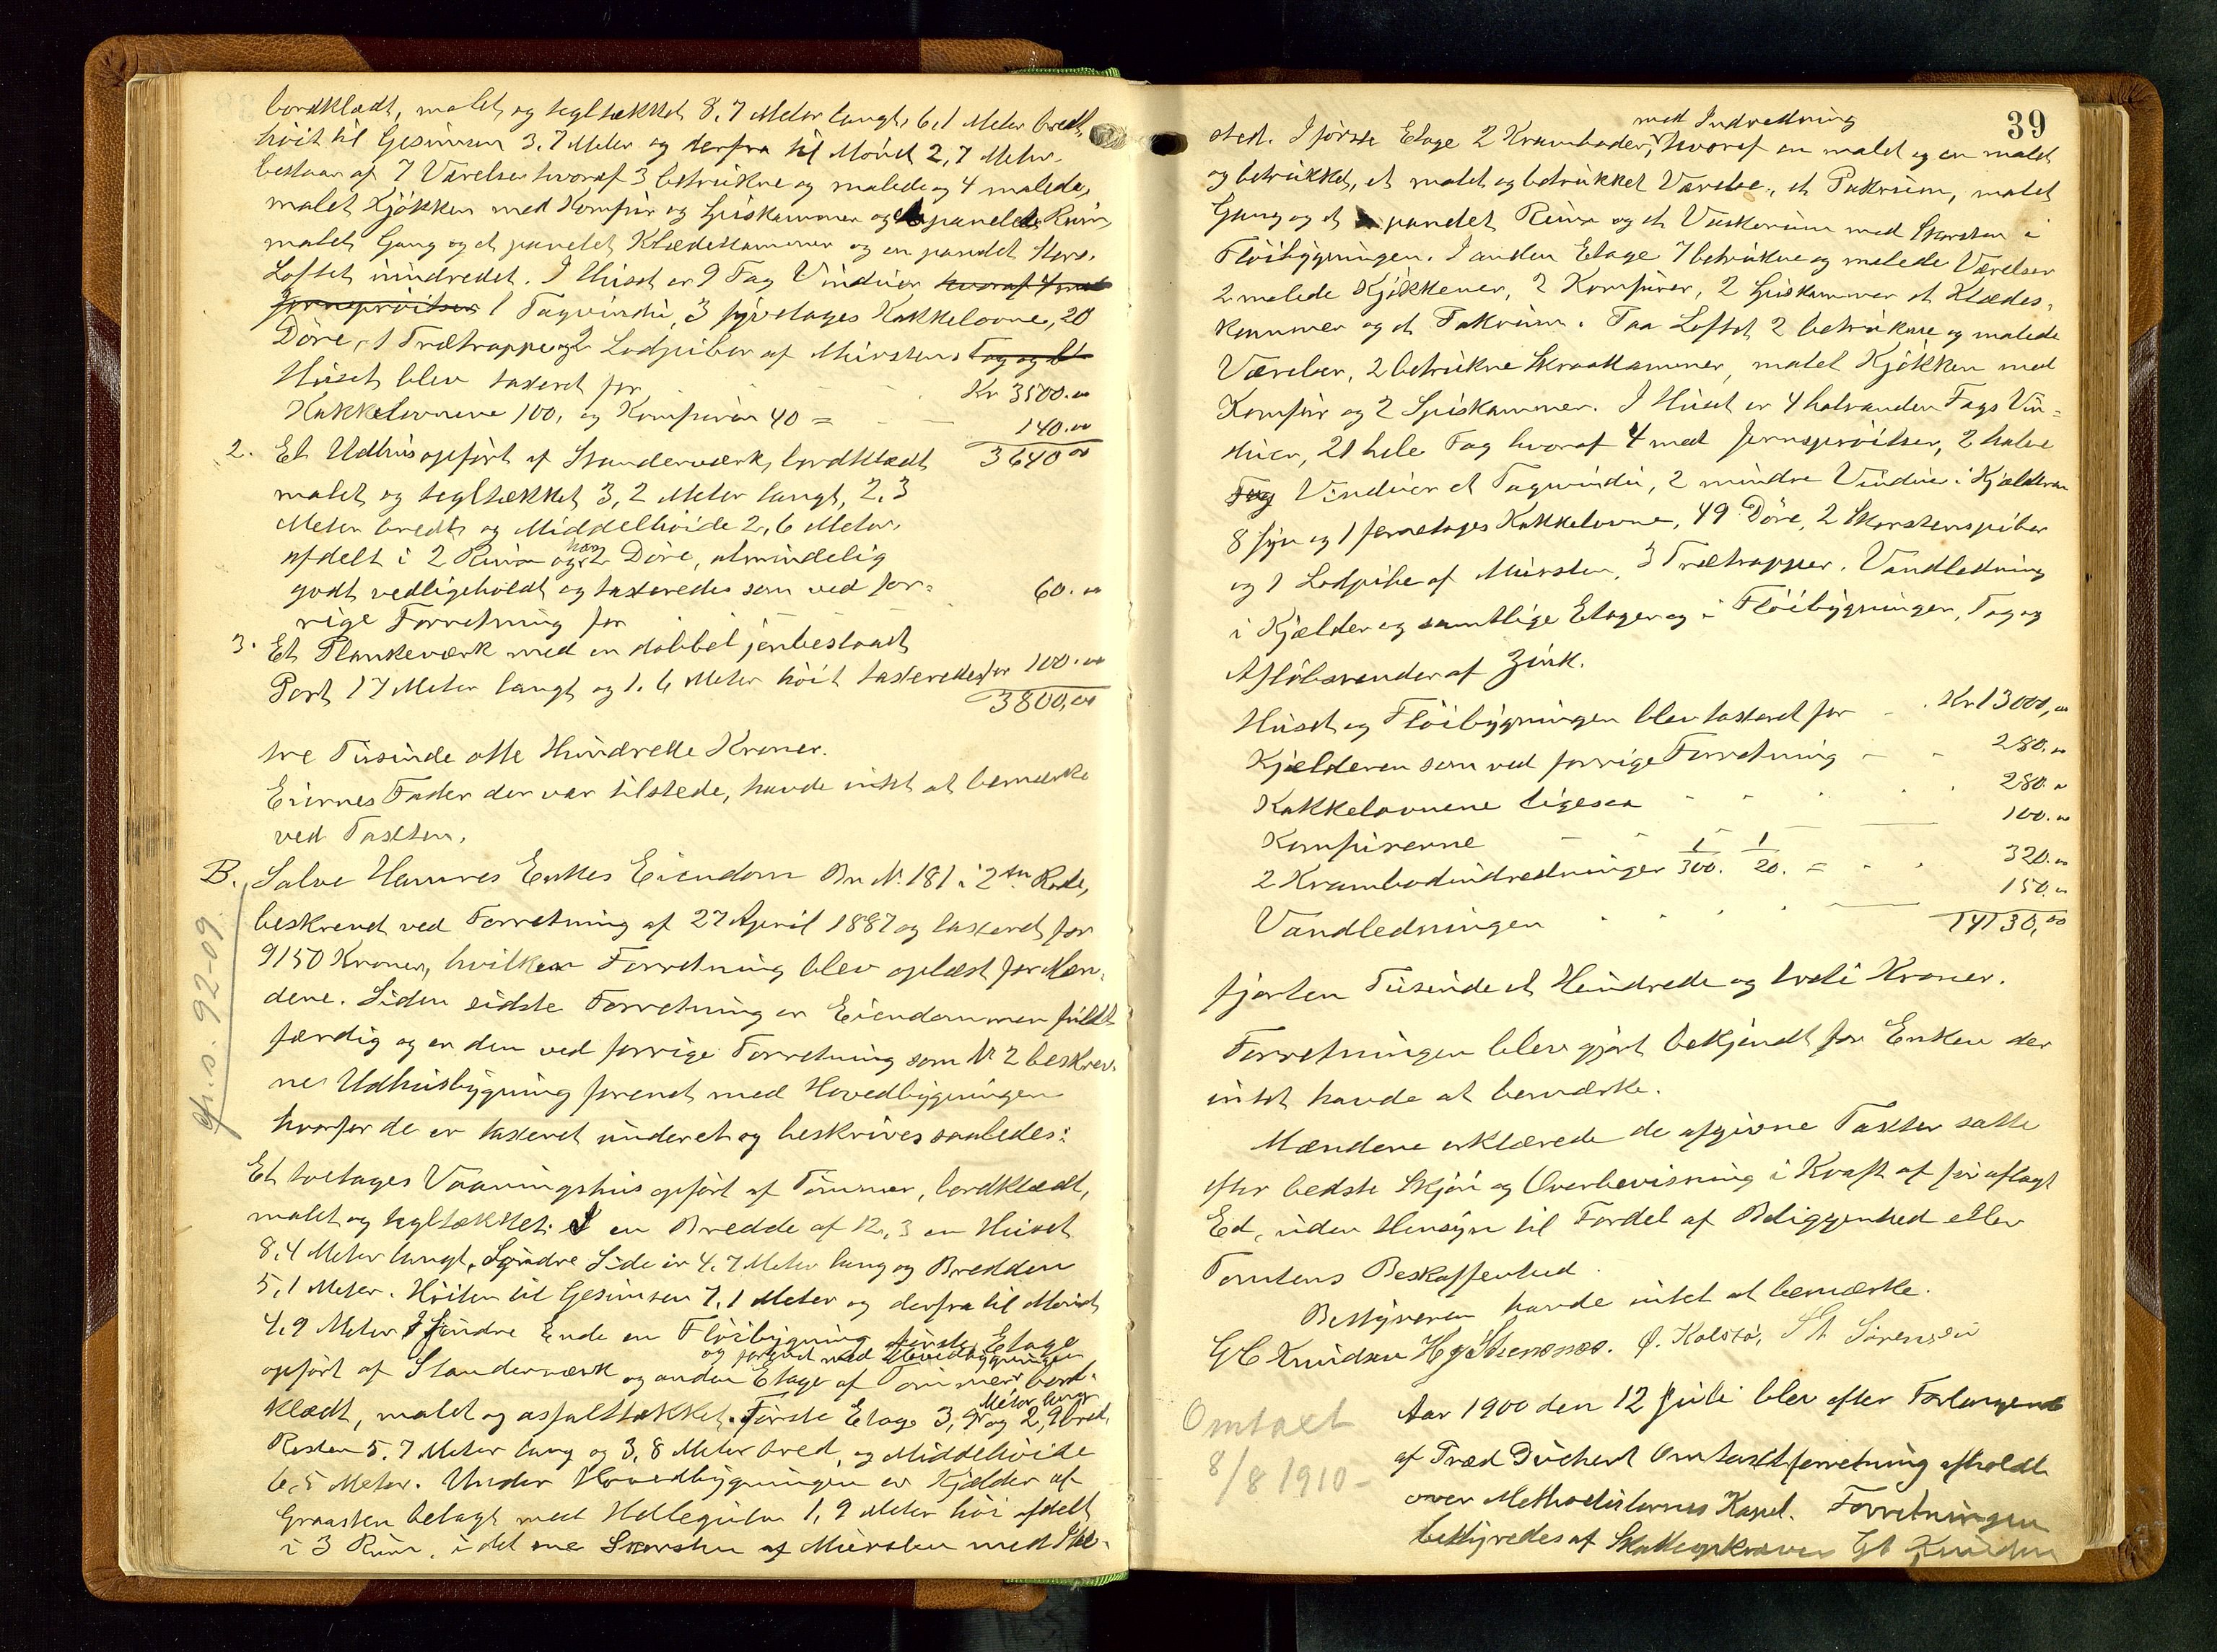 bordklædt, malet og tegltækket 8,7 Meter langt, 6,1 Meter bredt,
høit til Gesimsen 3,7 Meter og derfra til Mønet 2,7 Meter.
bestaar af 7 Værelser hvoraf 3 betrukne og malede og 4 malede,
malet Kjøkken med Komfur og Spiskammer og panelet Rum,
malet Gang og et panelet Klædeskammer og en panelet
Loftet uindredet. I Huset er 9 Fag Vinduer hvoraf 4 med
Jernsprøitser 1 Tagvindu, 3 fyretages Kakkelovne, 20
Døre, 1 Trætrappe og 2 Lodpiber af Mursten Tag og
Huset blev taxeret for Kr 3500.00
Kakkelovnene 100, og Komfuren 40 = 140.00
3640 00
2. Et Udhus opført af Standerværk, bordklædt
malet og tegltækket 3,2 Meter langt, 2,3
Meter bredt og Middelhøide 2,6 Meter,
afdelt i 2 Rum og har 2 Døre, almindelig
godt vedligeholdt og taxeredes som ved for-
rige Forretning for 60.00
3. Et Plankeværk med en dobbel jernbeslaaet
Port 17 Meter langt og 1.6 Meter høit taxeredes for 100.00
3800,00
tre Tusinde otte Hundrede Kroner.
Eiernes Fader der var tilstede, havde intet at bemærke
ved Taxten.
B. Salve Hannes Enkes Eiendom Br N. 181 i 2den Rode,
beskrevet ved Forretning af 27 April 1887 og taxeret for
9150 Kroner, hvilken Forretning blev oplæst for Mæn-
dene. Siden sidste Forretning er Eiendommen fuldt
færdig og er den ved forrige Forretning som N 2 beskrev-
ne Udhusbygning forenet med Hovedbygningen
hvorfor de er taxeret underet og beskrives saaledes:
92-09
Et toetages Vaaningshus opført af Tømmer, bordklædt,
malet og tegltækket. I en Bredde af 12,3 er Huset
8,4 Meter langt, Søndre Side er 4,7 Meter lang og Bredden
5,1 Meter. Høiden til Gesimsen 7,1 Meter og derfra til Mønet
4,9 Meter I søndre Ende en Fløibygning første Etage
og forenet med Hovedbygningen
opført af Standerværk og anden Etage af Tømmer bord-
klædt, malet og asfalttækket. Første Etage 3,9 Meter lang og 2,9 bred
Resten 5.7 Meter lang og 3,8 Meter bred, og Middelhøide
6,5 Meter. Under Hovedbygningen er Kjælder af
Graasten belagt med Hellegulv 1,9 Meter høi afdelt
i 3 Rum, i det ene Skorsten af Mursten med Ild-
39
med Indredning
sted. I første Etage 2 Kramboder, hvoraf en malet og en malet
og betrukket, et malet og betrukket Værelse, et Pakrum, malet
Gang og et panelet Rum og et Vaskerum med Skorsten i
Fløibygningen. I anden Etage 7 betrukne og malede Værelser
2 malede Kjøkkener, 2 Komfurer, 2 Spiskammer et Klædes-
kammer og et Pakrum. Paa Loftet 2 betrukne og malede
Værelser, 2 betrukne Skraakammer, malet Kjøkken med
Komfur og 2 Spiskammer. I Huset er 4 halvanden Fags Vin-
duer, 21 hele Fag hvoraf 4 med Jernsprøitser, 2 halve
Fag Vinduer et Tagvindu, 2 mindre Vinduer i Kjælderen
8 fyre og 1 femetages Kakkelovne, 49 Døre, 2 Skorstenspiber
og 1 Lodpibe af Mursten, 3 Trætrapper. Vandledning
i Kjælder og samtlige Etager og i Fløibygningen, Tag og
Afløbsrender af Zink.
Huset og Fløibygningen blev taxeret for Kr 13000,00
Kjælderen som ved forrige Forretning 280.00
Kakkelovnene ligesaa 280.00
Komfurerne 100.00
2 Krambodindredninger 1/300. 1/20. = 320.00
Vandledningen 150.00
14130,00
fjorten Tusinde et Hundrede og treti Kroner.
Forretningen blev gjort bekjendt for Enken der
intet havde at bemærke.
Mændene erklærede de afgivne Taxter satte
efter bedste Skjøn og Overbevisning i Kraft af før aflagt
Ed, uden Hensyn til Fordel af Beliggenhed eller
Tomtens Beskaffenhed.
Bestyreren havde intet at bemærke.
G C Knudsen H J Stensnæs. Ø. Kolstø, St Sørensen
Omtaxt
8/8 1910-
Aar 1900 den 12 Juli blev efter Forlangende
af Præd Duckert Omtaxtforretning afholdt
over Methodisternes Kapel. Forretningen
bestyredes af Skatteopkræver G C Knudsen